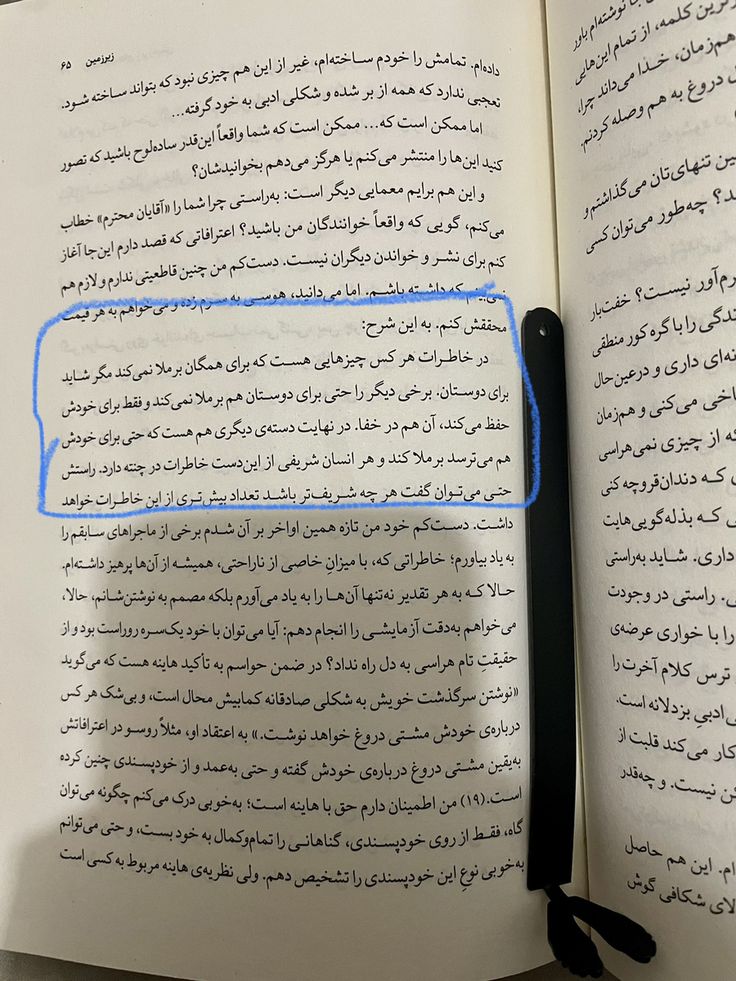 زیرزمین ۶۵
داده‌ام. تمامش را خودم ساخته‌ام، غیر از این هم چیزی نبود که بتواند ساخته شود.
تعجبی ندارد که همه از بر شده و شکلی ادبی به خود گرفته...
اما ممکن است که... ممکن است که شما واقعاً این‌قدر ساده‌لوح باشید که تصور
کنید این‌ها را منتشر می‌کنم یا هرگز می‌دهم بخوانیدشان؟
و این هم برایم معمایی دیگر است: به‌راستی چرا شما را «آقایان محترم» خطاب
می‌کنم، گویی که واقعاً خوانندگان من باشید؟ اعترافاتی که قصد دارم این‌جا آغاز
کنم برای نشر و خواندن دیگران نیست. دست‌کم من چنین قاطعیتی ندارم و لازم هم
نمی‌بینم که داشته باشم. اما می‌دانید، هوسی به سرم زده و می‌خواهم به هر قیمت
محققش کنم. به این شرح:
در خاطرات هر کس چیزهایی هست که برای همگان برملا نمی‌کند مگر شاید
برای دوستان. برخی دیگر را حتی برای دوستان هم برملا نمی‌کند و فقط برای خودش
حفظ می‌کند، آن هم در خفا. در نهایت دسته‌ی دیگری هم هست که حتی برای خودش
هم می‌ترسد برملا کند و هر انسان شریفی از این‌دست خاطرات در چنته دارد. راستش
حتی می‌توان گفت هر چه شریف‌تر باشد تعداد بیش‌تری از این خاطرات خواهد
داشت. دست‌کم خود من تازه همین اواخر بر آن شدم برخی از ماجراهای سابقم را
به یاد بیاورم؛ خاطراتی که، با میزانِ خاصی از ناراحتی، همیشه از آن‌ها پرهیز داشته‌ام.
حالا که به هر تقدیر نه‌تنها آن‌ها را به یاد می‌آورم بلکه مصمم به نوشتن‌شانم، حالا،
می‌خواهم به‌دقت آزمایشی را انجام دهم: آیا می‌توان با خود یک‌سره روراست بود و از
حقیقتِ تام هراسی به دل راه نداد؟ در ضمن حواسم به تأکید هاینه هست که می‌گوید
«نوشتن سرگذشت خویش به شکلی صادقانه کمابیش محال است، و بی‌شک هر کس
درباره‌ی خودش مشتی دروغ خواهد نوشت.» به اعتقاد او، مثلاً روسو در اعترافاتش
به‌یقین مشتی دروغ درباره‌ی خودش گفته و حتی به‌عمد و از خودپسندی چنین کرده
است.(۱۹) من اطمینان دارم حق با هاینه است؛ به‌خوبی درک می‌کنم چگونه می‌توان
گاه، فقط از روی خودپسندی، گناهانی را تمام‌وکمال به خود بست، و حتی می‌توانم
به‌خوبی نوعِ این خودپسندی را تشخیص دهم. ولی نظریه‌ی هاینه مربوط به کسی است
نوشته‌ام باور
کلمه، از تمام این‌هایی
هم‌زمان، خدا می‌داند چرا،
دروغ به هم وصله کردنم.
تنهای‌تان می‌گذاشتم و
چه‌طور می‌توان کسی
نیست؟ خفت‌بار
را با گره کور منطقی
داری و درعین‌حال
می‌کنی و هم‌زمان
که از چیزی نمی‌هراسی
که دندان‌قروچه کنی
که بذله‌گویی‌هایت
داری. شاید به‌راستی
راستی در وجودت
را با خواری عرضه‌ی
ترس کلام آخرت را
بزدلانه است.
کار می‌کند قلبت از
نیست. و چه‌قدر
این هم حاصل
لای شکافی گوش